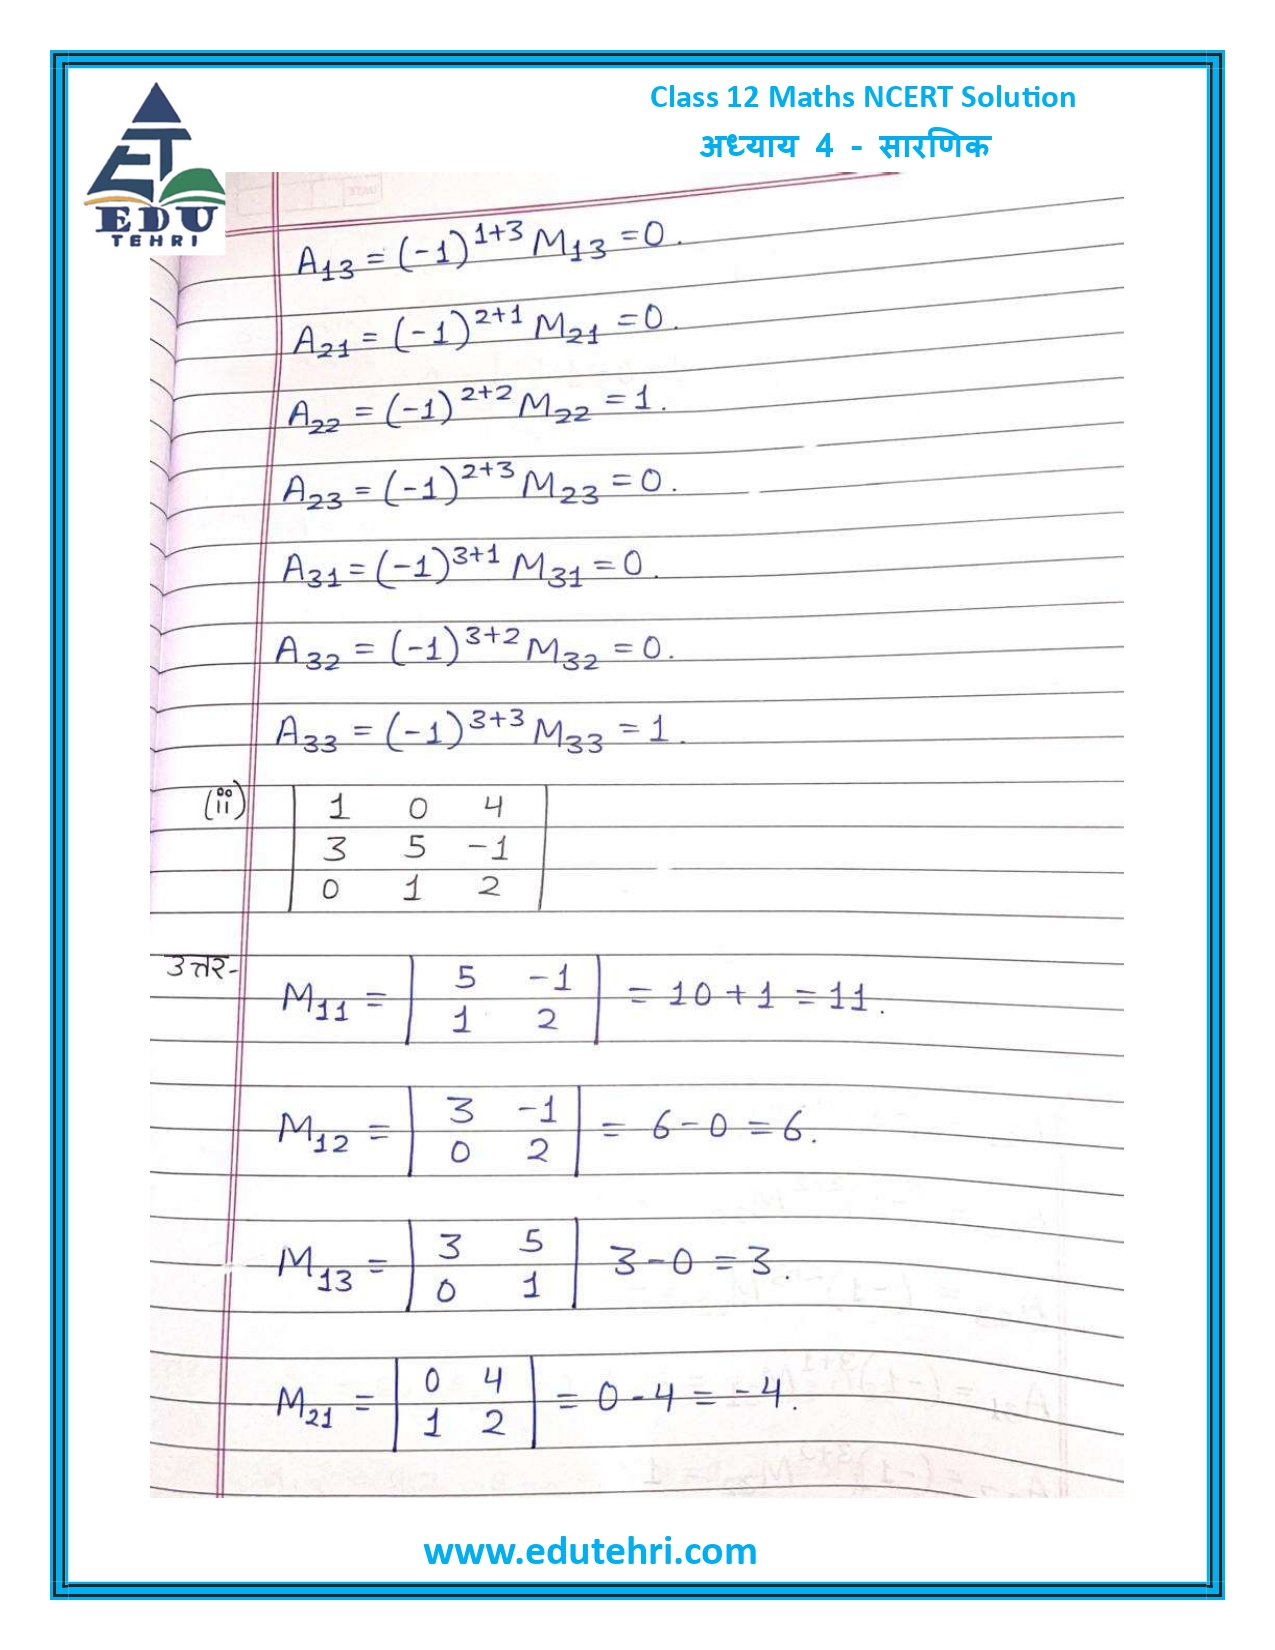 Class 12 Maths NCERT Solution
अध्याय 4 - सारणिक
EDU
TEHRI
A₁₃ = (-1)¹⁺³ M₁₃ = 0.
A₂₁ = (-1)²⁺¹ M₂₁ = 0.
A₂₂ = (-1)²⁺² M₂₂ = 1.
A₂₃ = (-1)²⁺³ M₂₃ = 0.
A₃₁ = (-1)³⁺¹ M₃₁ = 0.
A₃₂ = (-1)³⁺² M₃₂ = 0.
A₃₃ = (-1)³⁺³ M₃₃ = 1.
(ii) | 1 0 4 |
| 3 5 -1 |
| 0 1 2 |
उत्तर- M₁₁ = | 5 -1 | = 10 + 1 = 11.
| 1 2 |
M₁₂ = | 3 -1 | = 6 - 0 = 6.
| 0 2 |
M₁₃ = | 3 5 | 3 - 0 = 3.
| 0 1 |
M₂₁ = | 0 4 | = 0 - 4 = -4.
| 1 2 |
www.edutehri.com